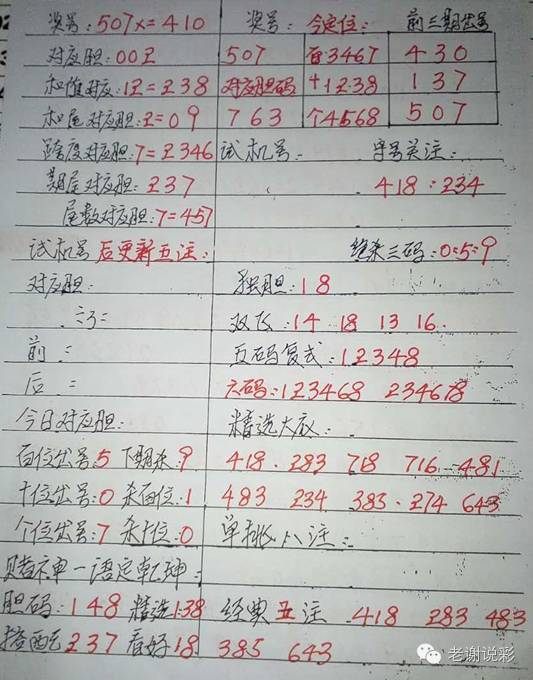 奖号:507x=410 奖号: 今定位: 前三期出号
对应胆:00又 507 百3467 430
和值对应:12=238 对应胆码 十1238 137
和尾对应胆:2=09 763 个4568 507
跨度对应胆:7=2346 试机号: 字号关注:
期尾对应胆:237 418:234
尾数对应胆:7=457
试机号后更新五注: 绝杀三码:0:5:9
对应胆: 独胆:18
双飞:14 18 13 16.
前: 五码复式:12348
后: 六码:123468 234678
今日对应胆: 精选大底:
百位出号:5 下期杀:9 418. 283 718 716 481
十位出号:0 杀百位:1 483 234 383. 274 643
个位出号:7 杀十位:0 单挑八注:
赌神一语定乾坤:
胆码:148 精选138 经典五注 418 283 483
搭配237 看好18 385 643
老谢说彩